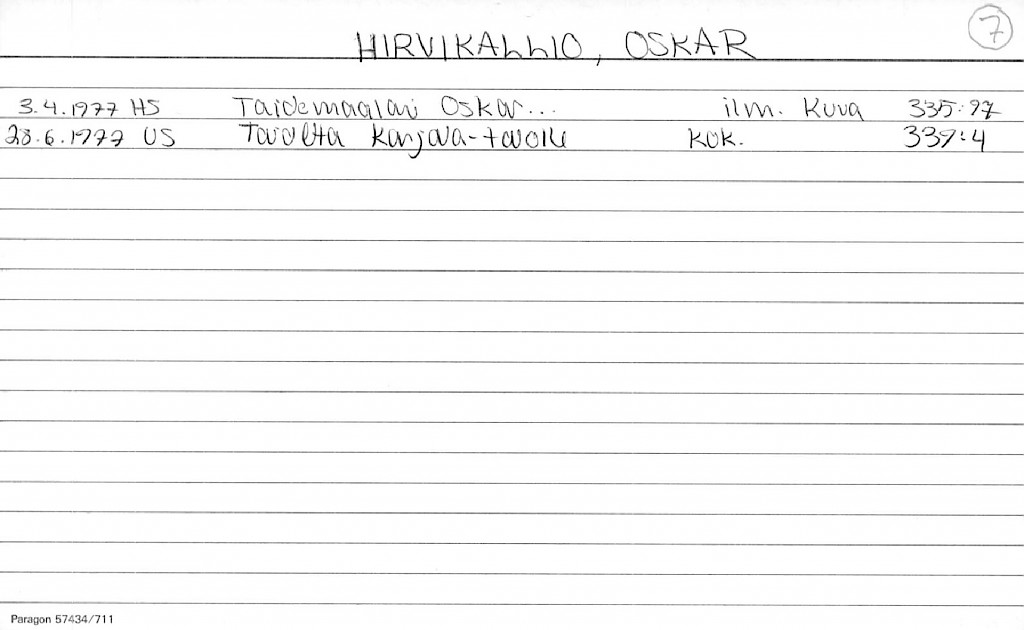 7
HIRVIKALLIO, OSKAR
3.4.1977 HS Taidemaalari Oskar... ilm. Kuva 335:97
28.6.1977 US Karjala- KUK. 339:4
Paragon 57434/711